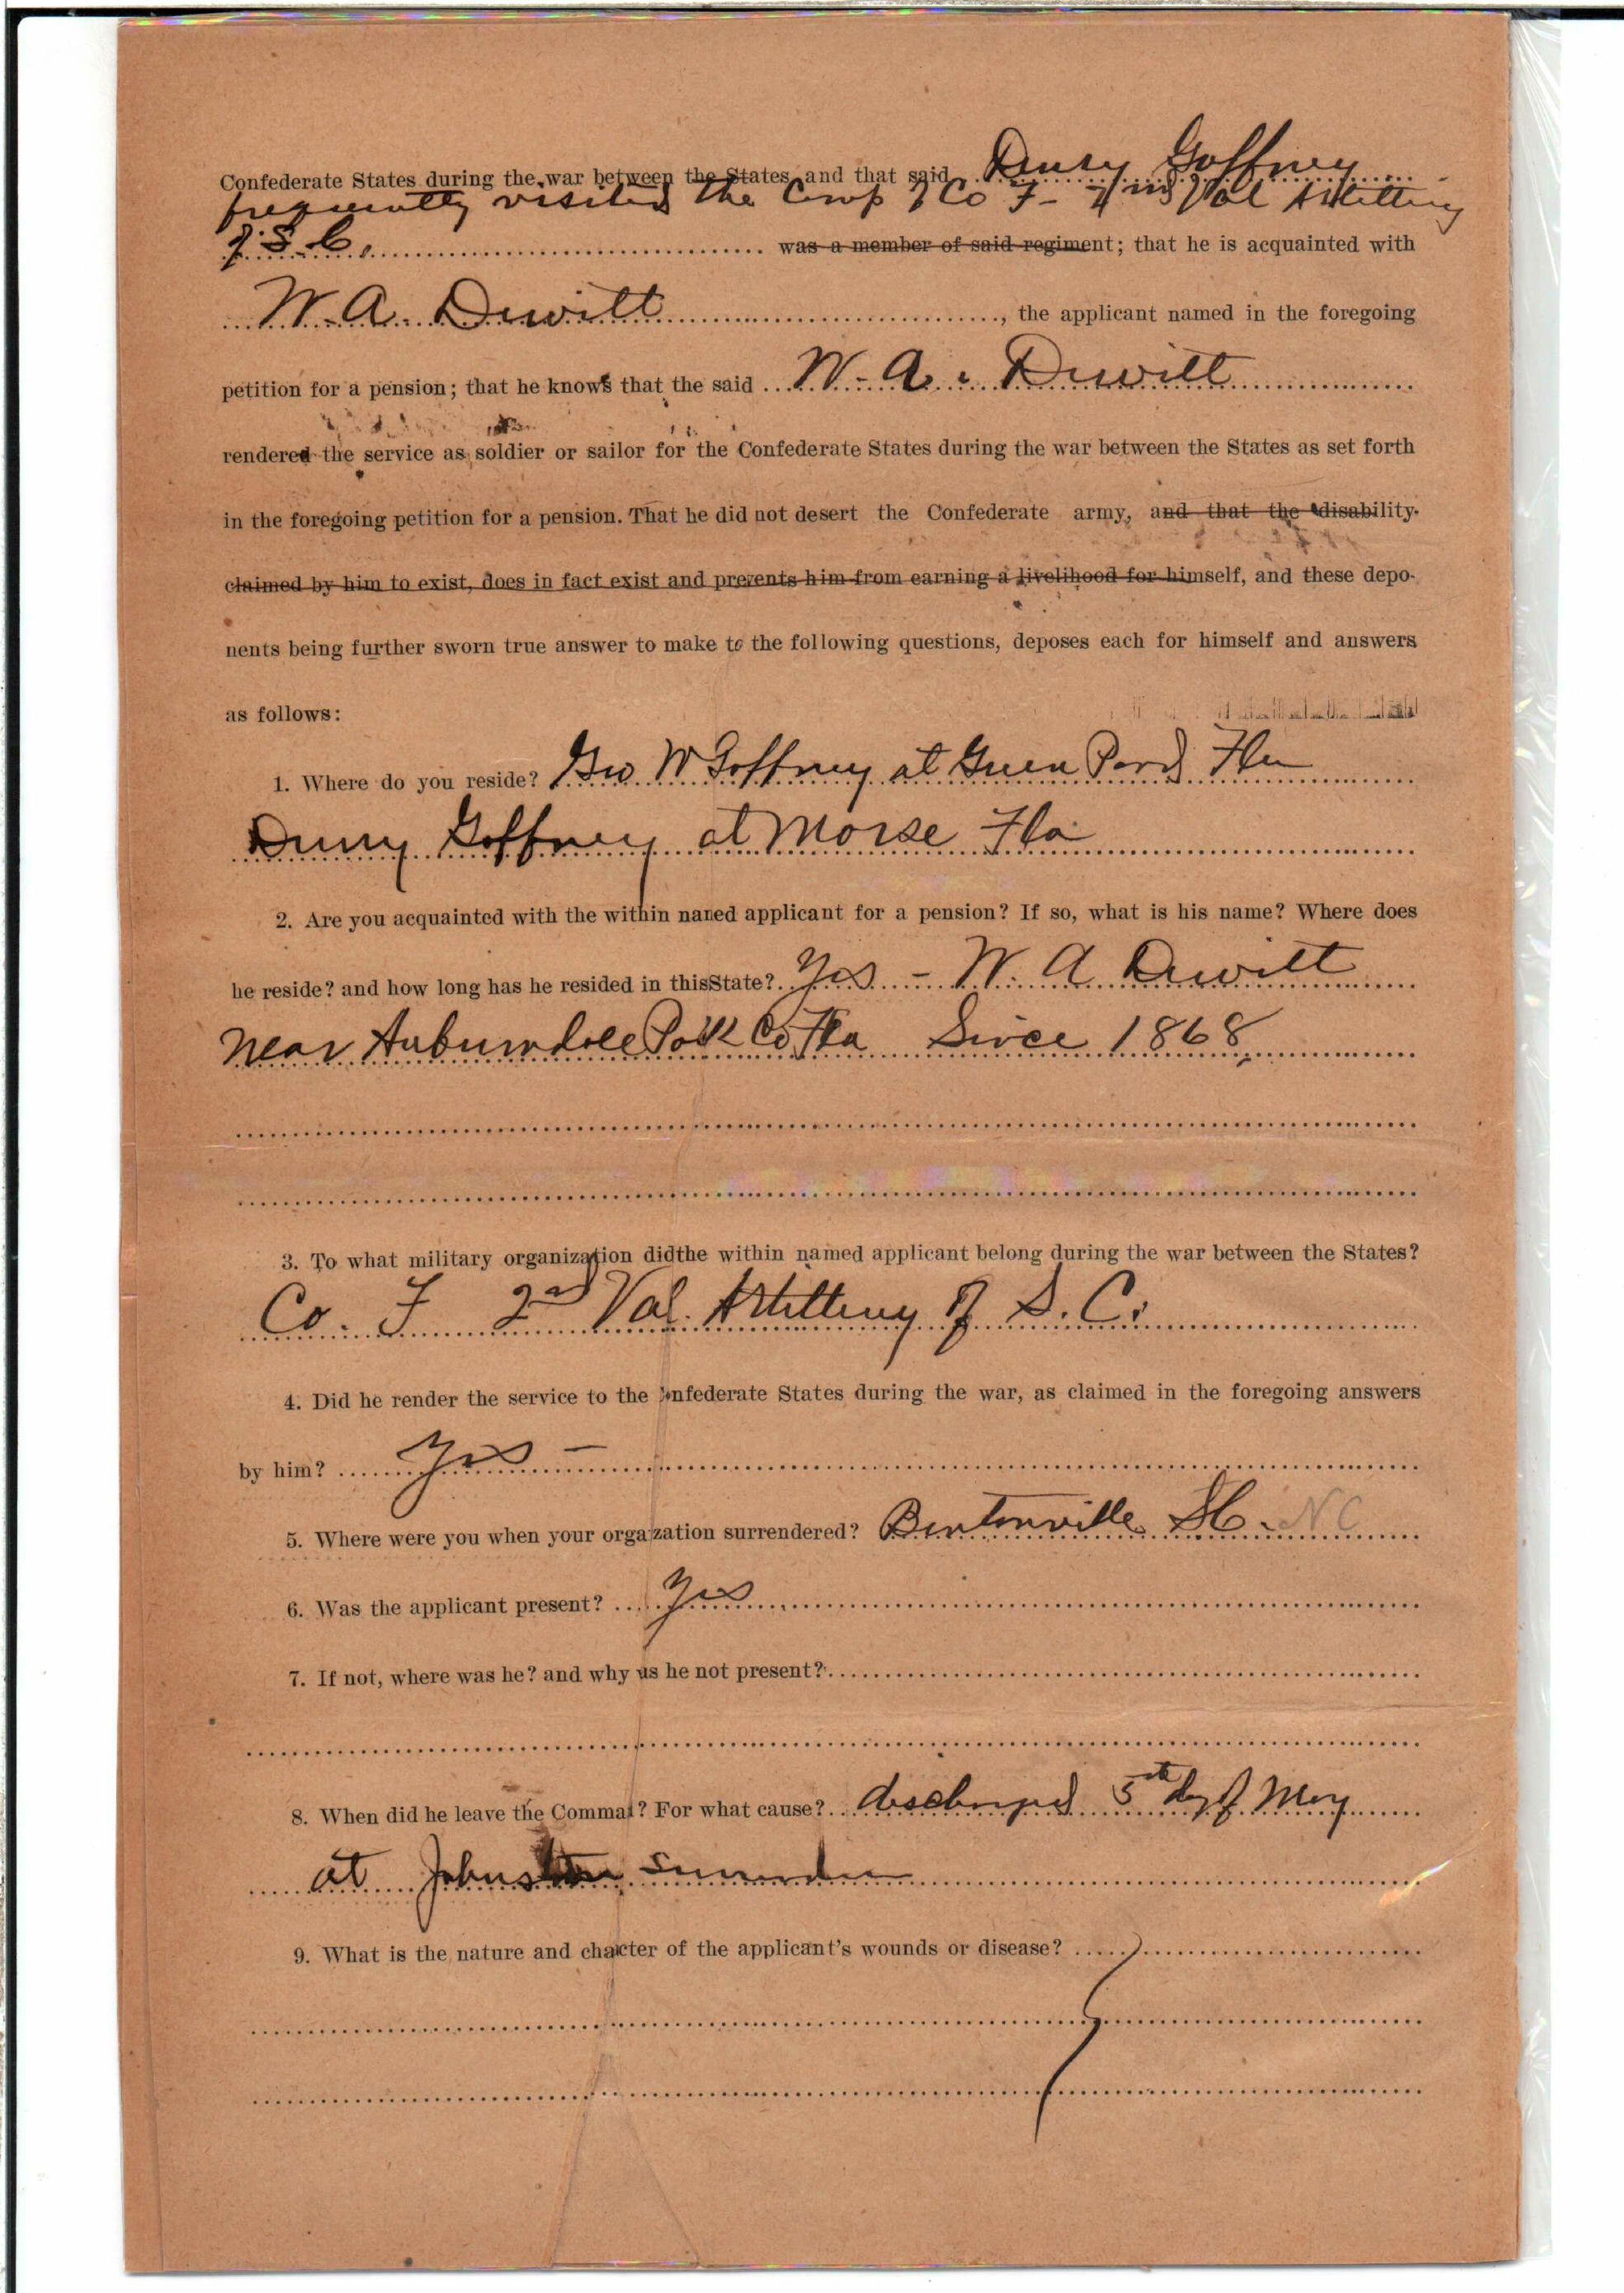 Confederate States during the war between the States, and that said Drury Goffney
frequently visited the Camp of Co F - 2nd Vol Artillery
of S. C. was a member of said regiment; that he is acquainted with
W. A. Dewitt, the applicant named in the foregoing
petition for a pension; that he knows that the said W. A. Dewitt
rendered the service as soldier or sailor for the Confederate States during the war between the States as set forth
in the foregoing petition for a pension. That he did not desert the Confederate army, and that the disability
claimed by him to exist, does in fact exist and prevents him from earning a livelihood for himself, and these depo-
nents being further sworn true answer to make to the following questions, deposes each for himself and answers
as follows:
1. Where do you reside? Geo W Goffney at Green Pond Fla
Drury Goffney at Morse Fla
2. Are you acquainted with the within named applicant for a pension? If so, what is his name? Where does
he reside? and how long has he resided in this State? Yes - W. A Dewitt
near Auburndale Polk Co Fla Since 1868,
3. To what military organization did the within named applicant belong during the war between the States?
Co. F 2nd Vol. Artillery of S. C.
4. Did he render the service to the onfederate States during the war, as claimed in the foregoing answers
by him? Yes -
5. Where were you when your orgazation surrendered? Bentonville SC. NC
6. Was the applicant present? Yes
7. If not, where was he? and why as he not present?
8. When did he leave the Comma? For what cause? discharged 5th day of May
at Johnston surrender
9. What is the nature and chaicter of the applicant's wounds or disease?